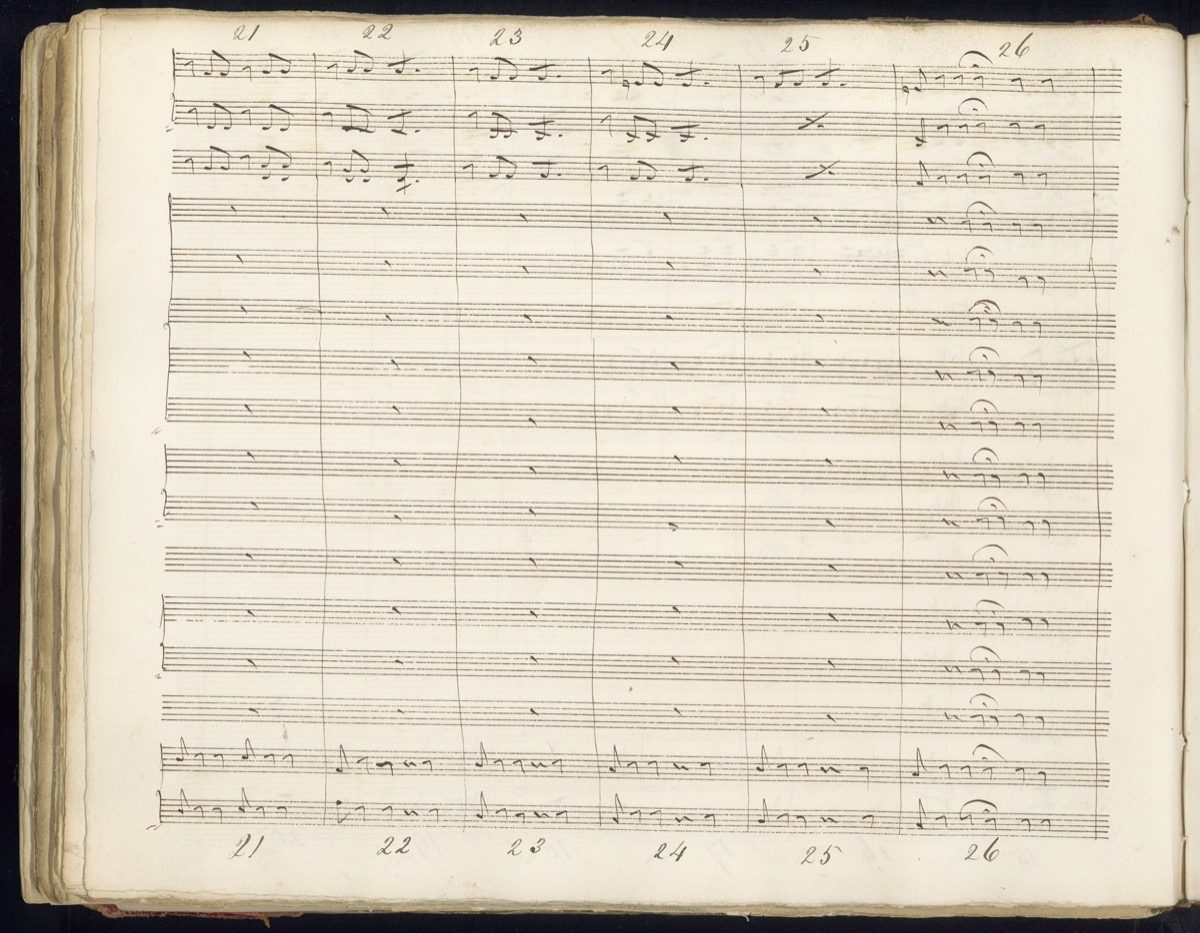 21 22 23 24 25 26
21 22 23 24 25 26